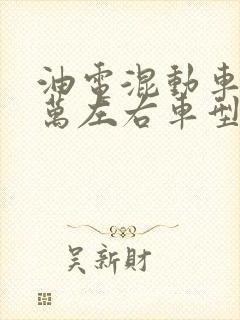 油電混動車
萬左右車型
吴新財